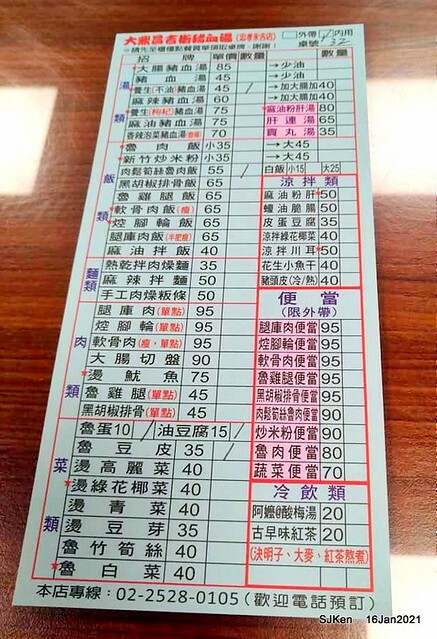 大鼎昌吉街豬血湯(忠孝永吉店) □外帶 / 內用
※請先至櫃檯點餐買單領取桌牌，謝謝！ 桌號：
招牌 單價 數量 數量
湯類
大腸豬血湯 85 / →少油
豬血湯 45 →少油
養生(不油)豬血湯 45 / →加大腸40
麻辣豬血湯 60 →加大腸40
養生(枸杞)豬血湯 75 麻油粉肝湯 80
麻油豬血湯 75 肝連湯 65
香辣泡菜豬血湯 70 貢丸湯 35
飯類
魯肉飯 小35 →大45
新竹炒米粉 小35 →大45
肉鬆筍絲魯肉飯 55 / 白飯 小15 大25
黑胡椒排骨飯 65
魯雞腿飯 65
軟骨肉飯(瘦) 65
焢腳輪飯 65
腿庫肉飯(半肥瘦) 65
麻油拌飯 40
涼拌類
麻油粉肝 50
蠔油脆腸 50
皮蛋豆腐 35
涼拌綠花椰菜 40
涼拌川耳 50
花生小魚干 40
豬頭皮(冷/熱) 40
麵類
熱乾拌肉燥麵 35
麻辣拌麵 50
手工肉燥粄條 50
肉類
腿庫肉(單點) 95
焢腳輪(單點) 95
軟骨肉(瘦，單點) 95
大腸切盤 90
燙魷魚 75
魯雞腿(單點) 45
黑胡椒排骨(單點) 45
便當
(限外帶)
腿庫肉便當 95
焢腳輪便當 95
軟骨肉便當 95
魯雞腿便當 95
黑胡椒排骨便當 95
肉鬆筍絲魯肉便當 90
炒米粉便當 90
魯肉便當 80
蔬菜便當 70
菜類
魯蛋10 / 油豆腐15 /
魯豆皮 35 /
燙高麗菜 40
燙綠花椰菜 40
燙青菜 40
燙豆芽 35
魯竹筍絲 40
魯白菜 40
冷飲類
阿嬤ㄟ酸梅湯 20
古早味紅茶 20
(決明子、大麥、紅茶熬煮)
本店專線：02-2528-0105(歡迎電話預訂)
SJKen 16Jan2021